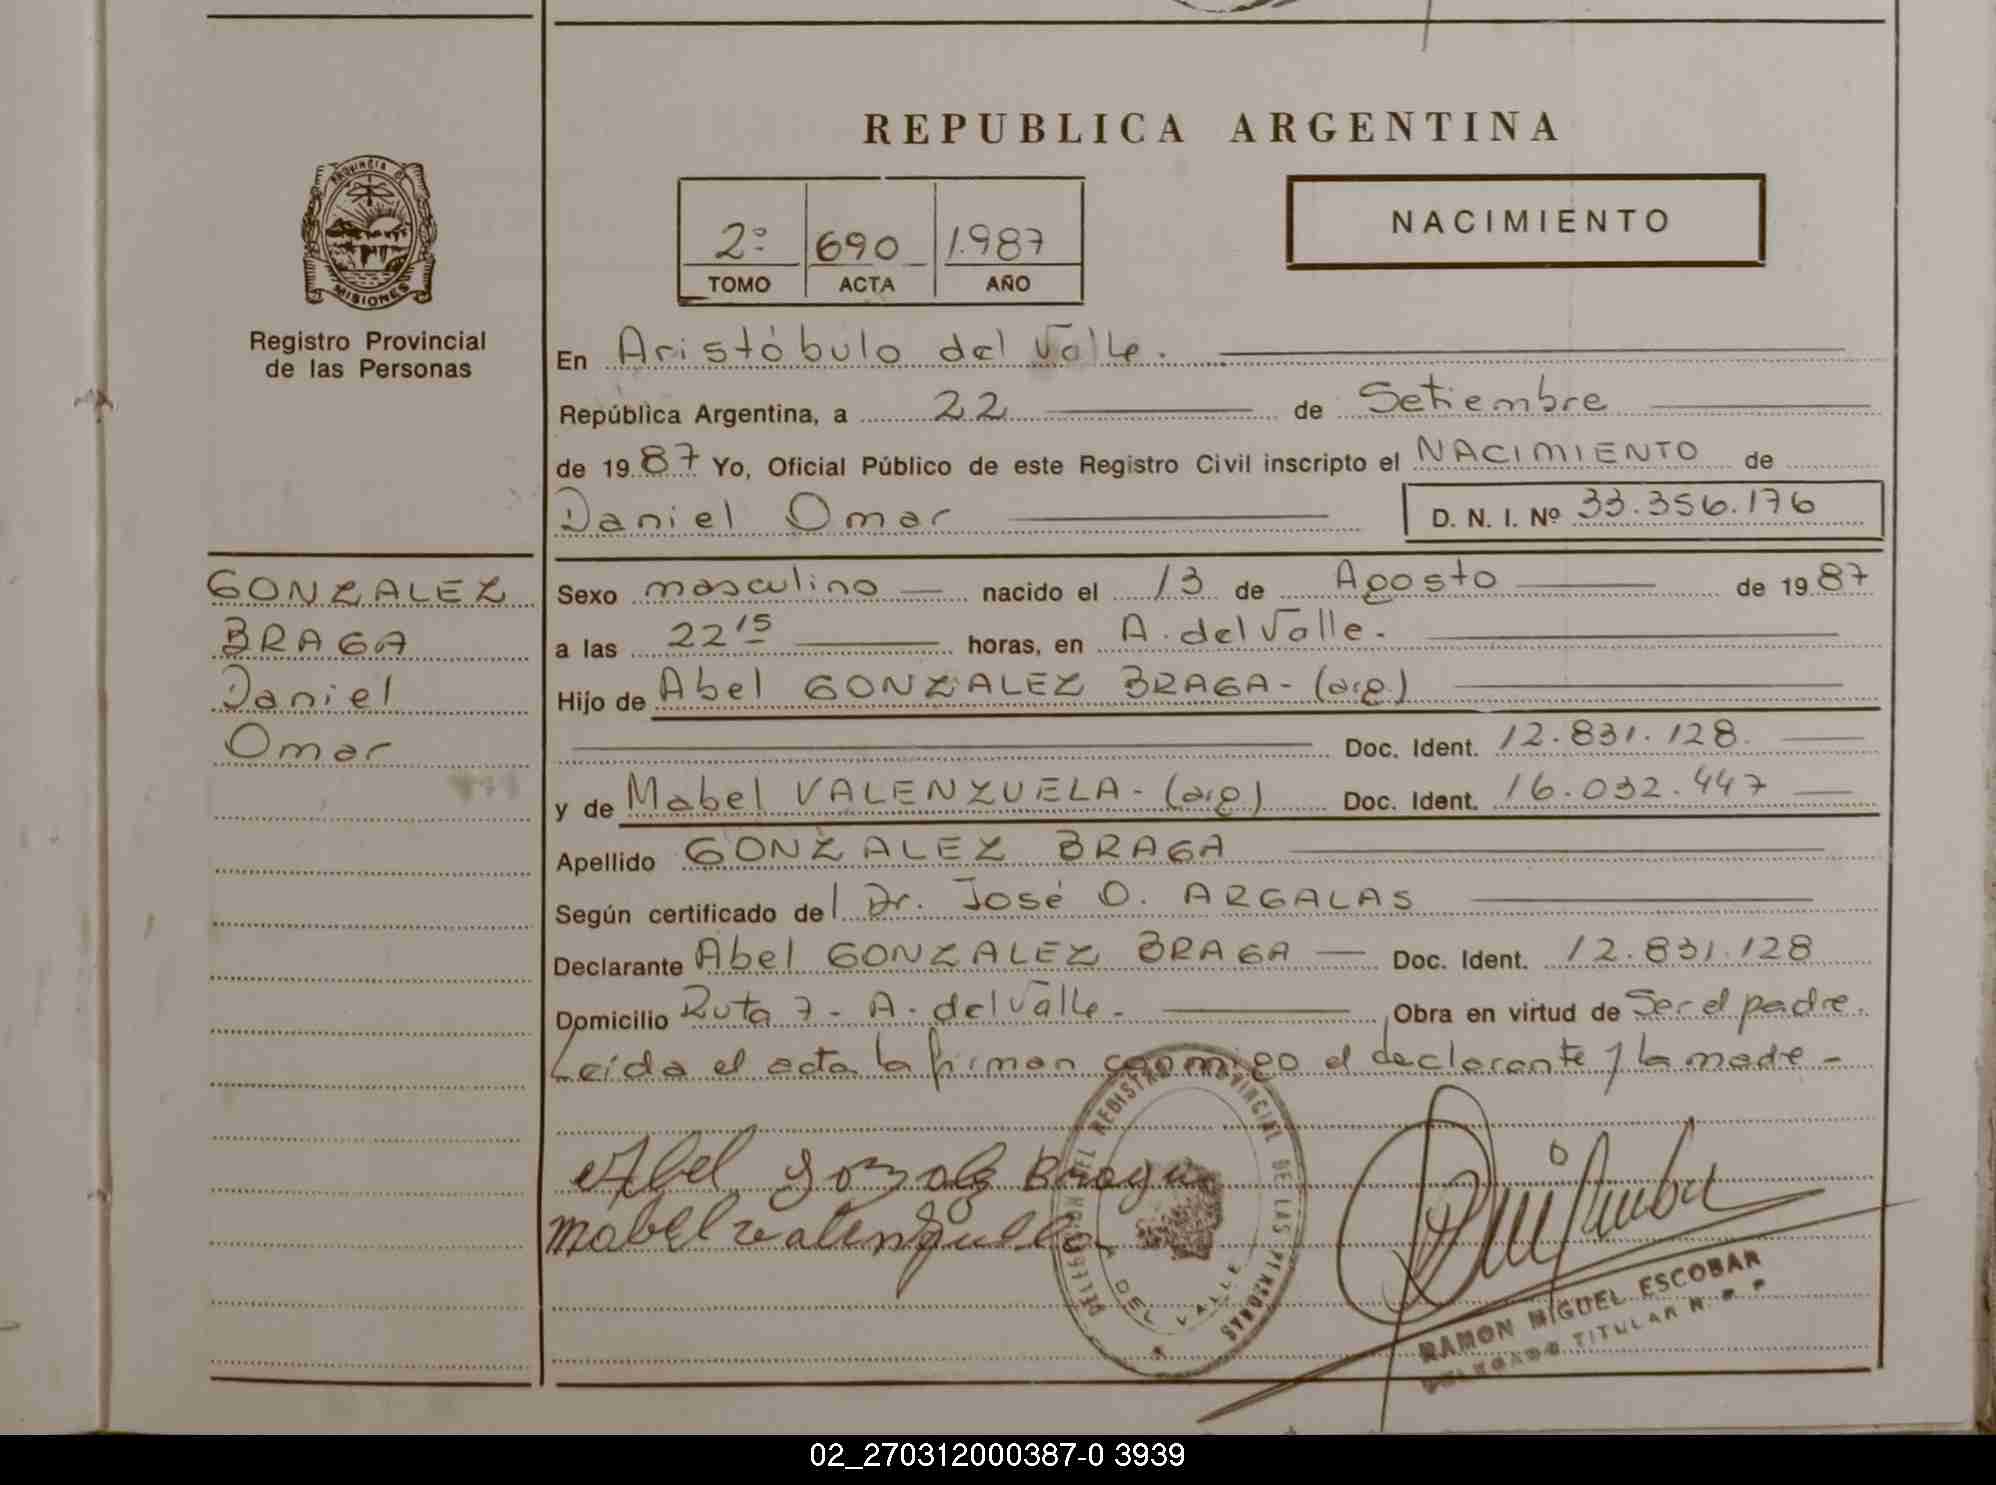 REPUBLICA ARGENTINA
PROVINCIA D
MISIONES
Registro Provincial
de las Personas
2º 690 1.987
TOMO ACTA AÑO
NACIMIENTO
En Aristóbulo del Valle.
República Argentina, a 22 de Setiembre
de 1987 Yo, Oficial Público de este Registro Civil inscripto el NACIMIENTO de
Daniel Omar D. N. I. Nº 33.356.176
GONZALEZ
BRAGA
Daniel
Omar
Sexo masculino nacido el 13 de Agosto de 1987
a las 22 15 horas, en A. del Valle.
Hijo de Abel GONZALEZ BRAGA - (arg.)
Doc. Ident. 12.831.128.
y de Mabel VALENZUELA - (arg) Doc. Ident. 16.032.447
Apellido GONZALEZ BRAGA
Según certificado del Dr. José O. ARGALAS
Declarante Abel GONZALEZ BRAGA Doc. Ident. 12.831.128
Domicilio Ruta 7 - A. del Valle. Obra en virtud de Ser el padre.
Leída el acta la firman conmigo el declarante y la madre -
Abel Gonzalez Braga
Mabel Valenzuela
DEL REGISTRO PROVINCIAL DE LAS PERSONAS
DEL VALLE
RAMON MIGUEL ESCOBAR
DELEGADO TITULAR R. P. P
02_270312000387-0 3939